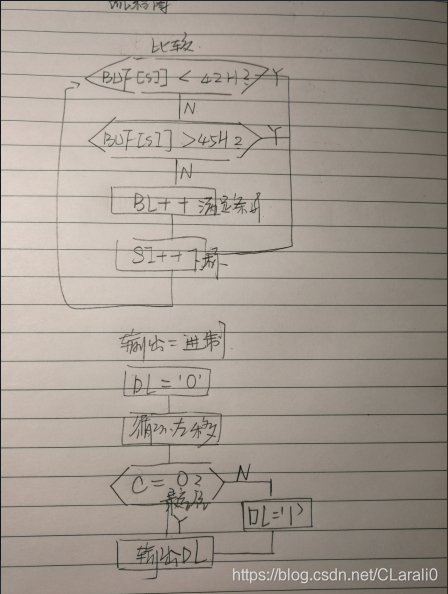 流程图
比较
BUF[SI] < 42H? Y
N
BUF[SI] >45H? Y
N
BL++ 满足条件
SI++ 下一
输出二进制
DL='0'
循环左移
C=0? N
最高位
Y
DL='1'
输出DL
https://blog.csdn.net/CLarali0